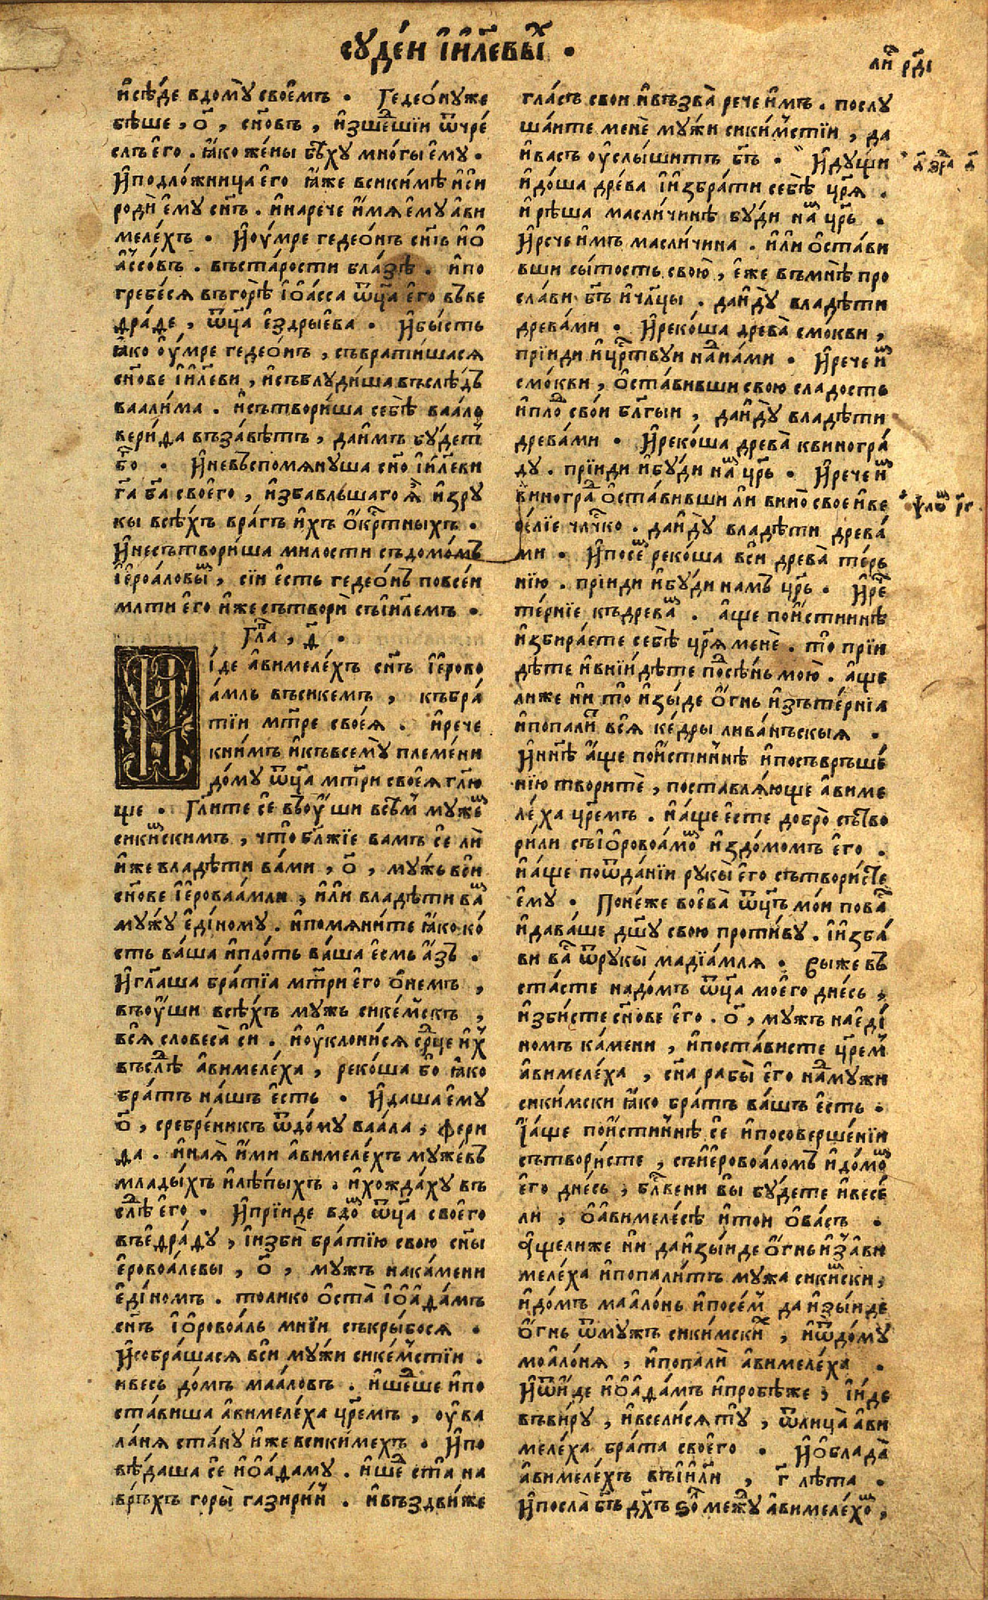 сꙋде́и і҆и҃левы́х .
ли҃ рд҃і
и҆сѣ́де вдо́мꙋ свое҆мъ . Гедео́нꙋже
бѣше , о҃ , сн҃овъ , и҆зшедшїи ѿчре́
слъ е҆го . ꙗ҆́ко же́ны бѧ́хꙋ мно́гы е҆мꙋ .
И҆подло́жница е҆го ꙗ҆́же всики́мѣ и҆си
роди е҆мꙋ сн҃ъ . и҆нарече и҆́мѧ е҆мꙋ а҆ви
меле́хъ . И҆оу҆́мре гедео́нъ сн҃ъ и҆ѡ҆
а҆́ссовъ . въста́рости бла́зѣ . и҆по
гребе́сѧ въго́рѣ і҆ѡ҆а́сса ѿц҃а е҆го въ́ве
дра́де , ѿц҃а е҆здрые҆ва . И҆бы́сть
ꙗ҆́ко оу҆́мре гедео́нъ , събрати́шасѧ
сн҃ове і҆и҃леви , и҆съблꙋди́ша въслѣ́дъ
ваали́ма . и҆сътвори́ша себѣ̀ ваа́ло
вери́да въза́вѣтъ , даи҆мъ бꙋ́дет
б҃о . И҆невъспомѧнꙋша сн҃о і҆и҃леви
г҃а б҃а свое҆го , и҆збавльшаго ѧ҆ и҆зрꙋ
кы всѣ́хъ вра́гъ и҆хъ ѻ҆крⷭ҇тныхъ .
И҆несътвори́ша милости съдомо́мъ
і҆е҆роа́ловым , сїи е҆́сть гедео́нъ повсеи
млⷭ҇ти е҆го и҆́же сътвори̂ съі҆и҃лемъ .
Гла , д҃ .
І҆́де а҆вимеле́хъ сн҃ъ і҆е҆рово
а́мль въсикемъ , къбра́
тїи мт҃ре свое́ѧ . и҆рече
книмъ и҆къвсемꙋ племени
до́мꙋ ѿц҃а мт҃ри свое́ѧ гл҃ю
ще . Гл҃ите се̂ въоу҆ши всѣм мꙋже
сики́мскимъ , что̂ бл҃жїе вамъ се̂ ли̂
и҆же владѣти ва́ми , о҃ , мꙋ́жь всѝ
сн҃ове і҆е҆роваа́мли , и҆лѝ владѣти ва
мꙋ́жꙋ е҆ді́номꙋ . и҆помѧни́те ꙗ҆́коко́
сть ва́ша и҆пло́ть ва́ша е҆смь а҆́зъ .
И҆гл҃аша бра́тїа мт҃ри е҆го ѡ҆немъ ,
въоу҆́ши всѣ́хъ мꙋжь сике́мскъ ,
всѧ̂ словеса̂ сѝ . и҆оу҆клони́сѧ срⷣце и҆х
въслѣ̂ а҆вимеле́ха , реко́ша бо ꙗ҆́ко
бра́тъ на́шъ е҆́сть . И҆даша е҆мꙋ
о҃ , сре́бреникъ ѿдо́мꙋ ваа́ла , фери
да . и҆наѧ̀ и҆́ми а҆вимеле́хъ мꙋже́въ
млады́хъ и҆лѣ́пыхъ . и҆хожда́хꙋ въ
слѣ̂ е҆го . И҆прїи́де вдо́м ѿц҃а свое҆го
въе҆дра́дꙋ , і҆изби̂ бра́тїю свою сн҃ы
е҆ровоа́левы , о҃ , мꙋжъ нака́мени
е҆ді́номъ . толико ѡ҆ста̂ і҆ѡ҆а҆да́мъ
сн҃ъ і҆ѻ҆ровоа́ль мнїи съкры́босѧ .
И҆собра́шасѧ всѝ мꙋ́жи сике́мстїи .
ивесь до́мъ маа́ловъ . и҆шедше и҆по
ста́виша а҆вимеле́ха цр҃емъ , оу҆ ва
ла́нѧ ста́нꙋ и҆же всики́мехъ . И҆по
вѣ́даша се̂ и҆ѡ҆а҆да́мꙋ . и҆шед ста на
връхъ горы̀ газири́н . и҆въздви́же
гла́съ свои и҆възва̂ рече и҆́мъ . послꙋ
шаите менѐ мꙋ́жи сики́мстїи , да
и҆ва́съ оу҆слы́шитъ бг҃ъ . И҆дꙋ́щи
и҆до́ша дре́ва і҆избра́ти себѣ̀ цр҃ѧ .
и҆рѣ́ша масли́чинѣ бꙋ́ди нам цр҃ь .
И҆рече и҆мъ масли́чина . и҆лѝ ѡ҆ста́ви
вши сы́тость свою̀ , е҆́же въмнѣ̀ про
сла́ви бг҃ъ и҆чл҃цы . даи҆дꙋ̀ владѣ́ти
древа́ми . И҆реко́ша древа̀ смокви ,
прїи́ди и҆цр҃твꙋи на́дна́ми . И҆рече и҆м
смо́кви , ѡ҆ста́вивши свою сладость
и҆пло́д сво́и бл҃гыи , даи҆дꙋ владѣти
древа́ми . И҆реко́ша древа̀ квиногра́
дꙋ . прїи́ди и҆бꙋ́ди нам цр҃ь . И҆рече и҆м
виногра́д ѡ҆ста́вивши ли вино̂ свое и҆ве
се́лїе чл҃чко . даи҆дꙋ̀ владѣ́ти древа́
ми . И҆посем реко́ша всѝ древа̀ те́рь
нїю . прїи́ди и҆бꙋ́ди намъ цр҃ь . И҆рече
те́рнїе къдрева́м . а҆ще пои҆́стиннѣ
и҆збира́ете себѣ̀ цр҃ѧ менѐ . то̂ прїи
дѣ́те и҆вни́дѣте под сѣнь мою̀ . а҆ще
лиже ни̂ то̂ и҆зы́де ѻ҆́гнь и҆зъте́рнїа
и҆попали́т всѧ̂ ке́дры лива́нъскыѧ .
И҆ннѣ а҆ще пои҆́стиннѣ и҆посъвръше́
нїю творитѐ , поставлѧ́юще а҆виме
ле́ха цр҃емъ . и҆а҆ще е҆сте добро̂ сътво
ри́ли съі҆ѻ҆ровоа́мом и҆здомомъ е҆го .
и҆а҆ще поѿда́нїи рꙋкы̀ е҆го сътвори́сте
е҆мꙋ . Поне́же воева̀ ѿц҃ъ мо́и пова́с
и҆дава́ше дш҃ꙋ свою проти́вꙋ . і҆изба́
ви ва́с ѿрꙋкы̀ мадїа́млѧ . вы́же въ
ста́сте надо́мъ ѿц҃а мое҆го дне́сь ,
и҆збисте сн҃ове е҆го . о҃ , мꙋжъ нае҆ді
номъ ка́мени , и҆поста́висте цр҃ем
а҆вимеле́ха , сн҃а рабы̀ е҆го надмꙋжи
сики́мски ꙗ҆́ко бра́тъ ва́шъ е҆́сть .
І҆а҆́ще пои҆́стиннѣ се̂ и҆посоверше́нїи
сътвори́сте , съі҆е҆ровоа́ломъ и҆до́мом
е҆го дне́сь , бл҃вени вы бꙋ́дете и҆весе
ли , ѻ҆а҆вимеле́сѣ и҆тои ѡ҆ва́съ .
а҆щелиже ни̂ даи҆зы́иде ѻ҆́гнь и҆з а҆ви
меле́ха и҆попали́тъ мꙋжа сики́мски ,
и҆до́мъ маало́нь и҆посе́м да и҆зы́иде
ѻ҆́гнь ѿмꙋжъ сики́мских , и҆ѿдо́мꙋ
моало́нѧ , и҆попали̂ а҆вимеле́ха .
И҆ѿи́де и҆ѡ҆а҆да́мъ и҆пробѣже , і҆и́де
въви́рꙋ , и҆всели́сѧ тꙋ̀ , ѿлица̀ а҆ви
меле́ха бра́та свое҆го . И҆ѡ҆блада̀
а҆вимеле́хъ въі҆и҃ли , г҃ лѣ́та .
И҆посла̀ бг҃ъ дх҃ъ ѕо́л ме́ждꙋ а҆вимеле́хом ,